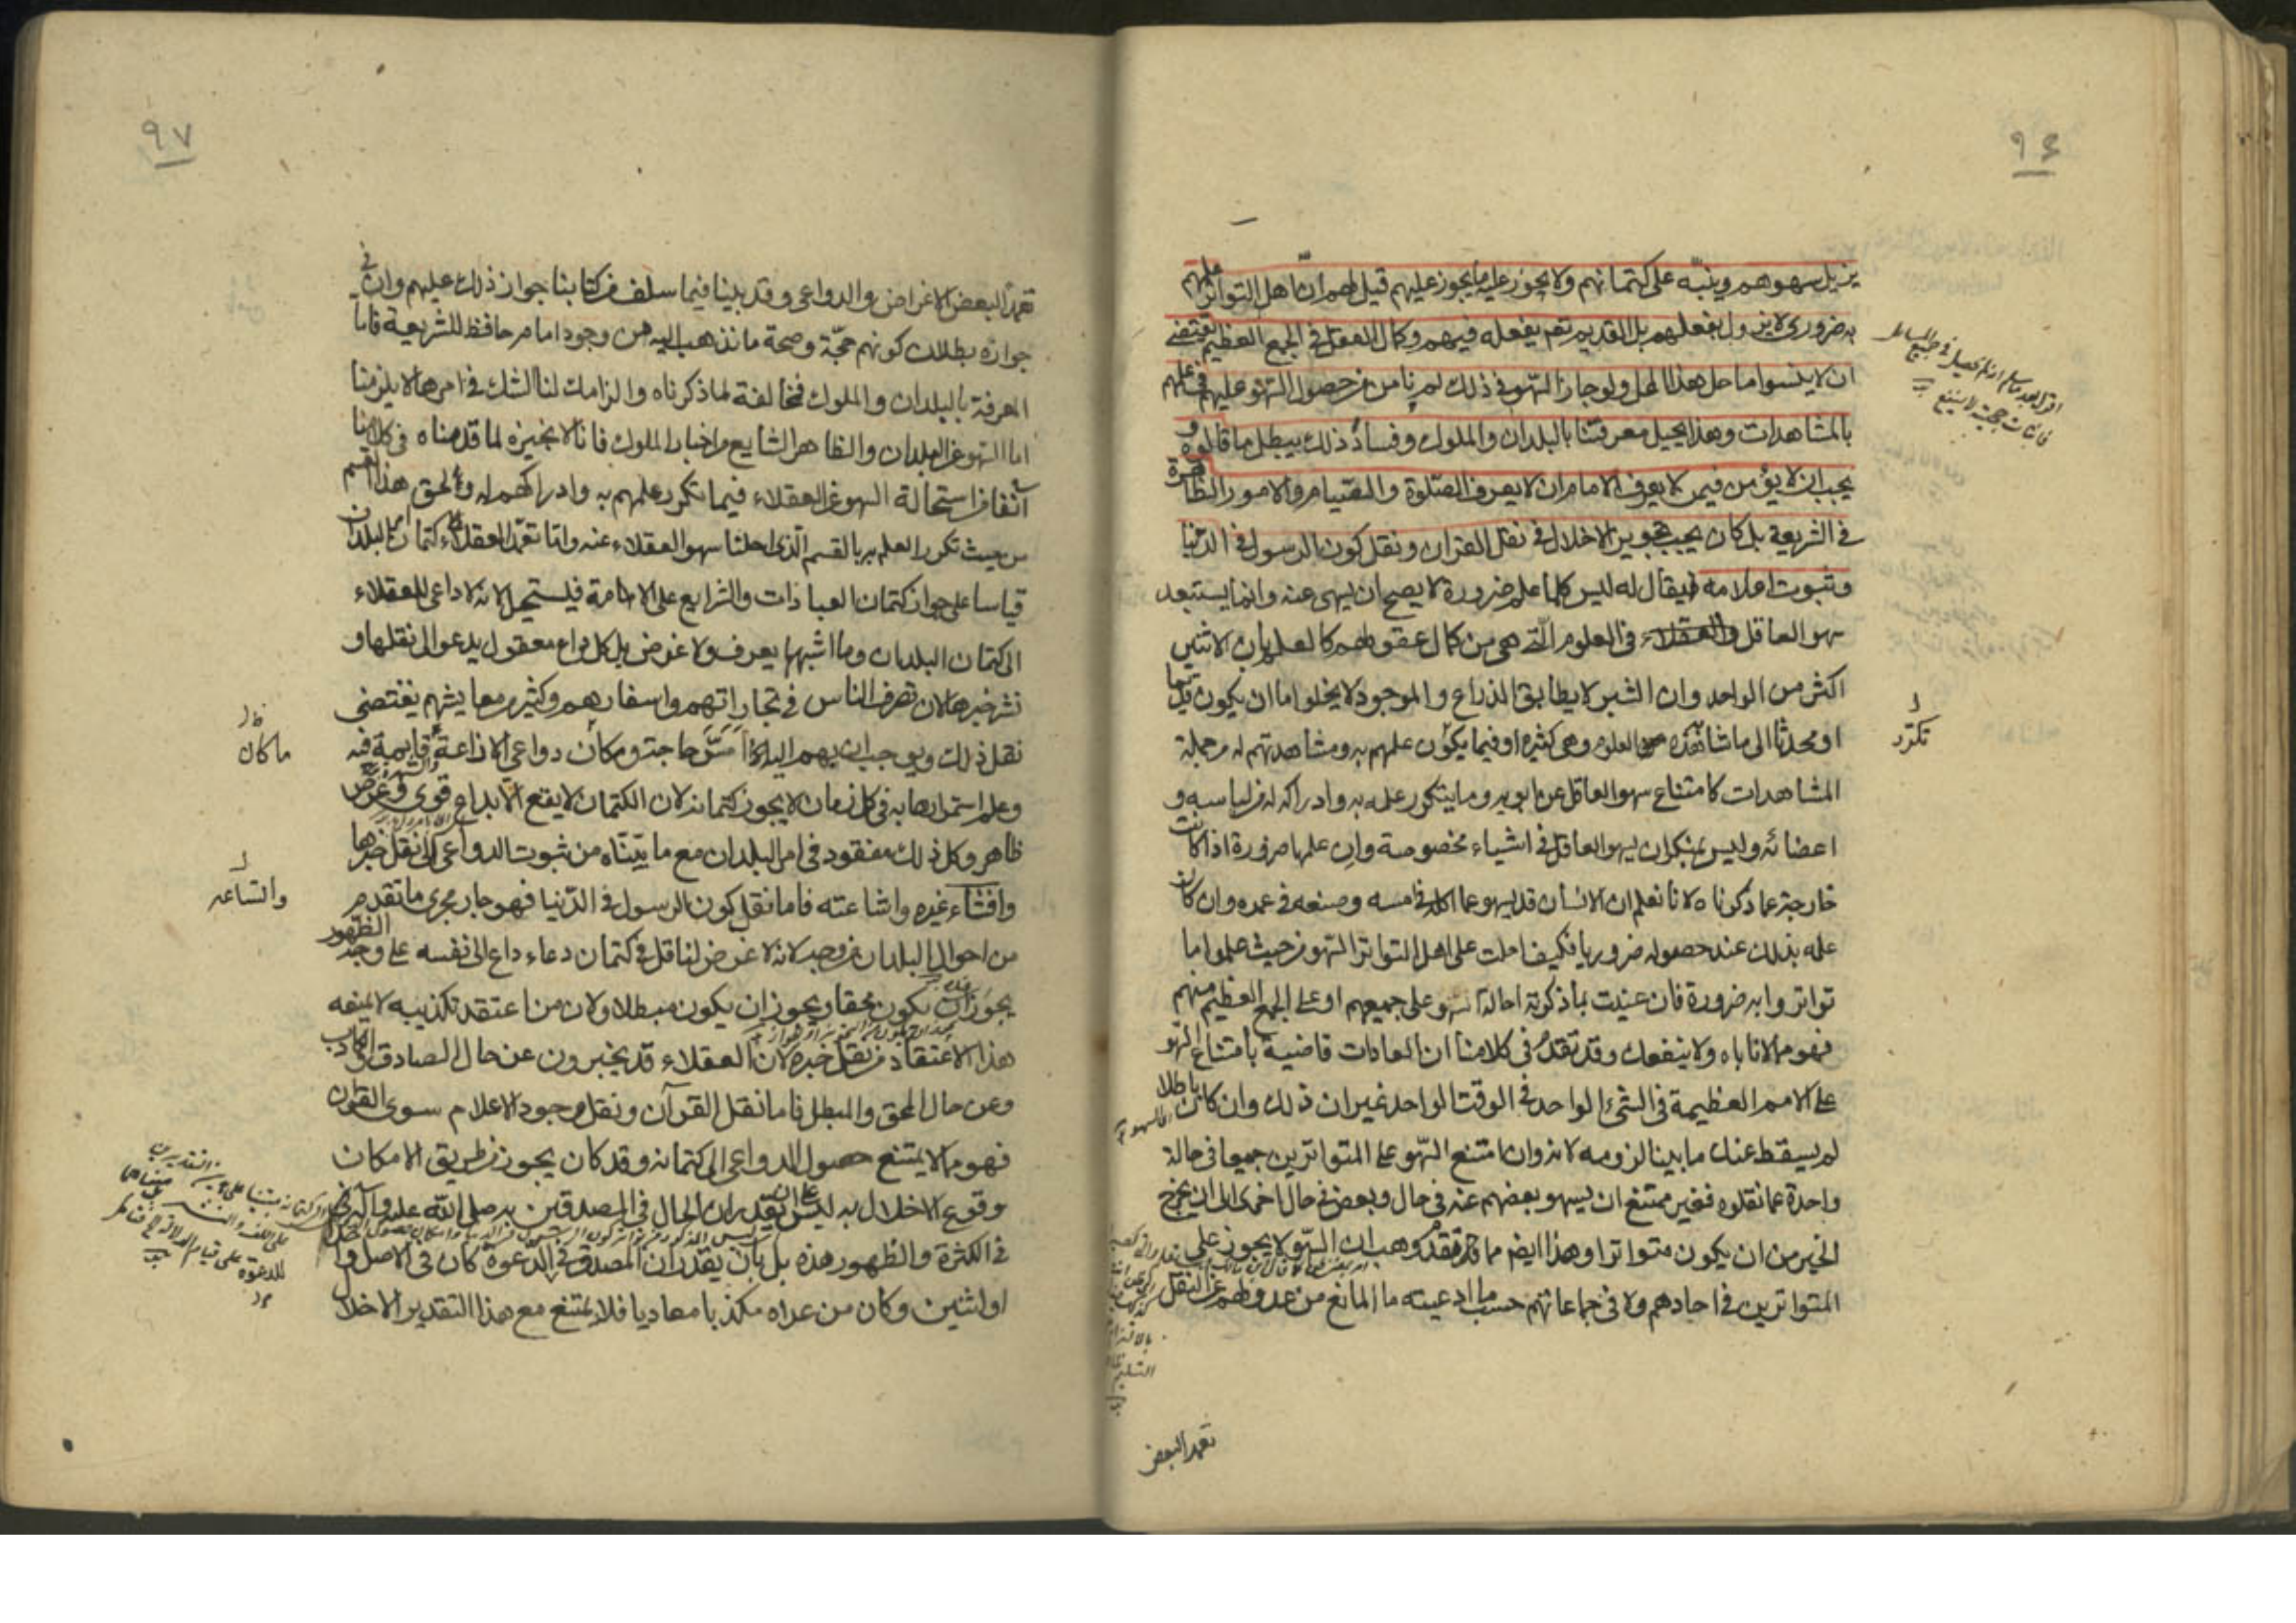 ٩٦
يزيل سهوهم وينبّه على كتمانهم ولا يجوز عليه ما يجوز عليهم قيل لهم انّ اهل التواتر علمهم
به ضروري لا يزول بفعلهم بل القديم تعم يفعله فيهم وكمال العقل في الجمع العظيم يقتضي
ان لا ينسوا ما حل هذا المحل ولو جاز السّهو في ذلك لم نأمن من حصول السّهو عليهم في علمهم
بالمشاهدات وهذا يحيل معرفتنا بالبلدان والملوك وفساد ذلك يبطل ما قالوه و
يجب ان لا يؤمن فيمن لا يعرف الامام ان لا يعرف الصّلوة والصّيام والامور الظاهرة
في الشريعة بل كان يجب تجويز الاخلال في نقل القران ونقل كون الرسول في الدّنيا
وثبوت اعلامه فيقال له ليس كلما علم ضرورة لا يصح ان يسهى عنه وانما يستبعد
سهو العاقل في العلوم الّتي هي من كمال عقولهم كالعلم بان الاثنين
اكثر من الواحد وان الشبر لا يطابق الذراع والموجود لا يخلوا اما ان يكون قديما
او محدثا الى ما شاكل هذه العلوم وهي كثيرة او فيما يكون علمهم به ومشاهدتهم له من جملة
المشاهدات كامتناع سهو العاقل عن ابويه وما يتكرر علمه به وادراكه له من لباسه و
اعضائه وليس بمنكر ان يسهو العاقل في اشياء مخصوصة وان علمها ضرورة اذا كانت
خارجة عما ذكرناه لانا نعلم ان الانسان قد يسهو عما اكله في امسه وصنعه في عمره وان كان
علمه بذلك عند حصوله ضروريا فكيف احلت على اهل التواتر السّهو من حيث علموا ما
تواتروا به ضرورة فان عنيت بما ذكرته احالة السهو على جميعهم او على الجمع العظيم منهم
فهو مما لا ناباه ولا ينفعك وقد تقدّم في كلامنا ان العادات قاضية بامتناع السّهو
على الامم العظيمة في الشيء الواحد في الوقت الواحد غير ان ذلك وان كان باطلا
لم يسقط عنك ما بينا لزومه لانه وان امتنع السّهو على المتواترين جميعا في حالة
واحدة عما نقلوه فغير ممتنع ان يسهو بعضهم عنه في حال وبعض في حال اخرى الى ان يخرج
الخبر من ان يكون متواترا وهذا ايضم مما قد تقدم وهب ان السّهو لا يجوز على
المتواترين في احادهم ولا في جماعاتهم حسب ما ادعيته ما المانع من عدولهم عن النقل
تكرّر
تعمد البعض
٩٧
تعمدا لبعض الاغراض والدواعي وقد بينا فيما سلف من كتابنا جواز ذلك عليهم وان في
جوازه بطلان كونهم حجّة وصحة ما نذهب اليه من وجود امام حافظ للشريعة فاما
المعرفة بالبلدان والملوك فمخالفة لما ذكرناه والزامك لنا الشك في امرها لا يلزمنا
اما السّهو عن البلدان والظاهر الشايع من اخبار الملوك فانا لا نجيزه لما قدمناه في كلامنا
آنفا من استحالة السهو عن العقلاء فيما تكرر علمهم به وادراكهم له ويلحق هذا القسم
من حيث تكرر العلم به بالقسم الّذي احلنا سهو العقلاء عنه وامّا تعمّد العقلاء كتمان البلدان
قياسا على جواز كتمان العبادات والشرايع على الامامة فليستحيل لانه لا داعي للعقلاء
الى كتمان البلدان وما اشبهها يعرف ولا غرض بل كل داع معقول يدعو الى نقلها و
نشر خبرها لان تصرف الناس في تجاراتهم واسفارهم وكثير من معايشهم يقتضي
نقل ذلك ويوجب ان بهم اليه امسّ حاجة وما كان دواعي الاذاعة قايمة فيه
وعلم استمرارها به في كل زمان لا يجوز كتمانه لان الكتمان لا يقع الا بداع قوي وغرض
ظاهر وكل ذلك مفقود في امر البلدان مع ما بيّنّاه من ثبوت الدواعي الى نقل خبرها
وافشاء غيره واشاعته فاما نقل كون الرسول في الدّنيا فهو جار مجرى ما تقدم
من احوال البلدان من وجه لانه لا غرض لناقل في كتمان دعاء داع الى نفسه على وجه الظّهور
يجوز ان يكون محقا ويجوز ان يكون مبطلا ولان من اعتقد تكذيبه لا يمنعه
هذا الاعتقاد من نقل خبره لان العقلاء قد يخبرون عن حال الصادق والكاذب
وعن حال المحق والمبطل فاما نقل القرآن ونقل وجود الاعلام سوى القرآن
فهو مما لا يمتنع حصول الدواعي الى كتمانه وقد كان يجوز من طريق الامكان
وقوع الاخلال به ليس على ان يقدر ان الحال في المصدقين به صلى الله عليه وآله
في الكثرة والظهور هذه بل بان يقدر ان المصدق في الدعوة كان في الاصل واحدا
او اثنين وكان من عداه مكذبا معاديا فلا يمتنع مع هذا التقدير الاخلال
ما كان
والشاعه